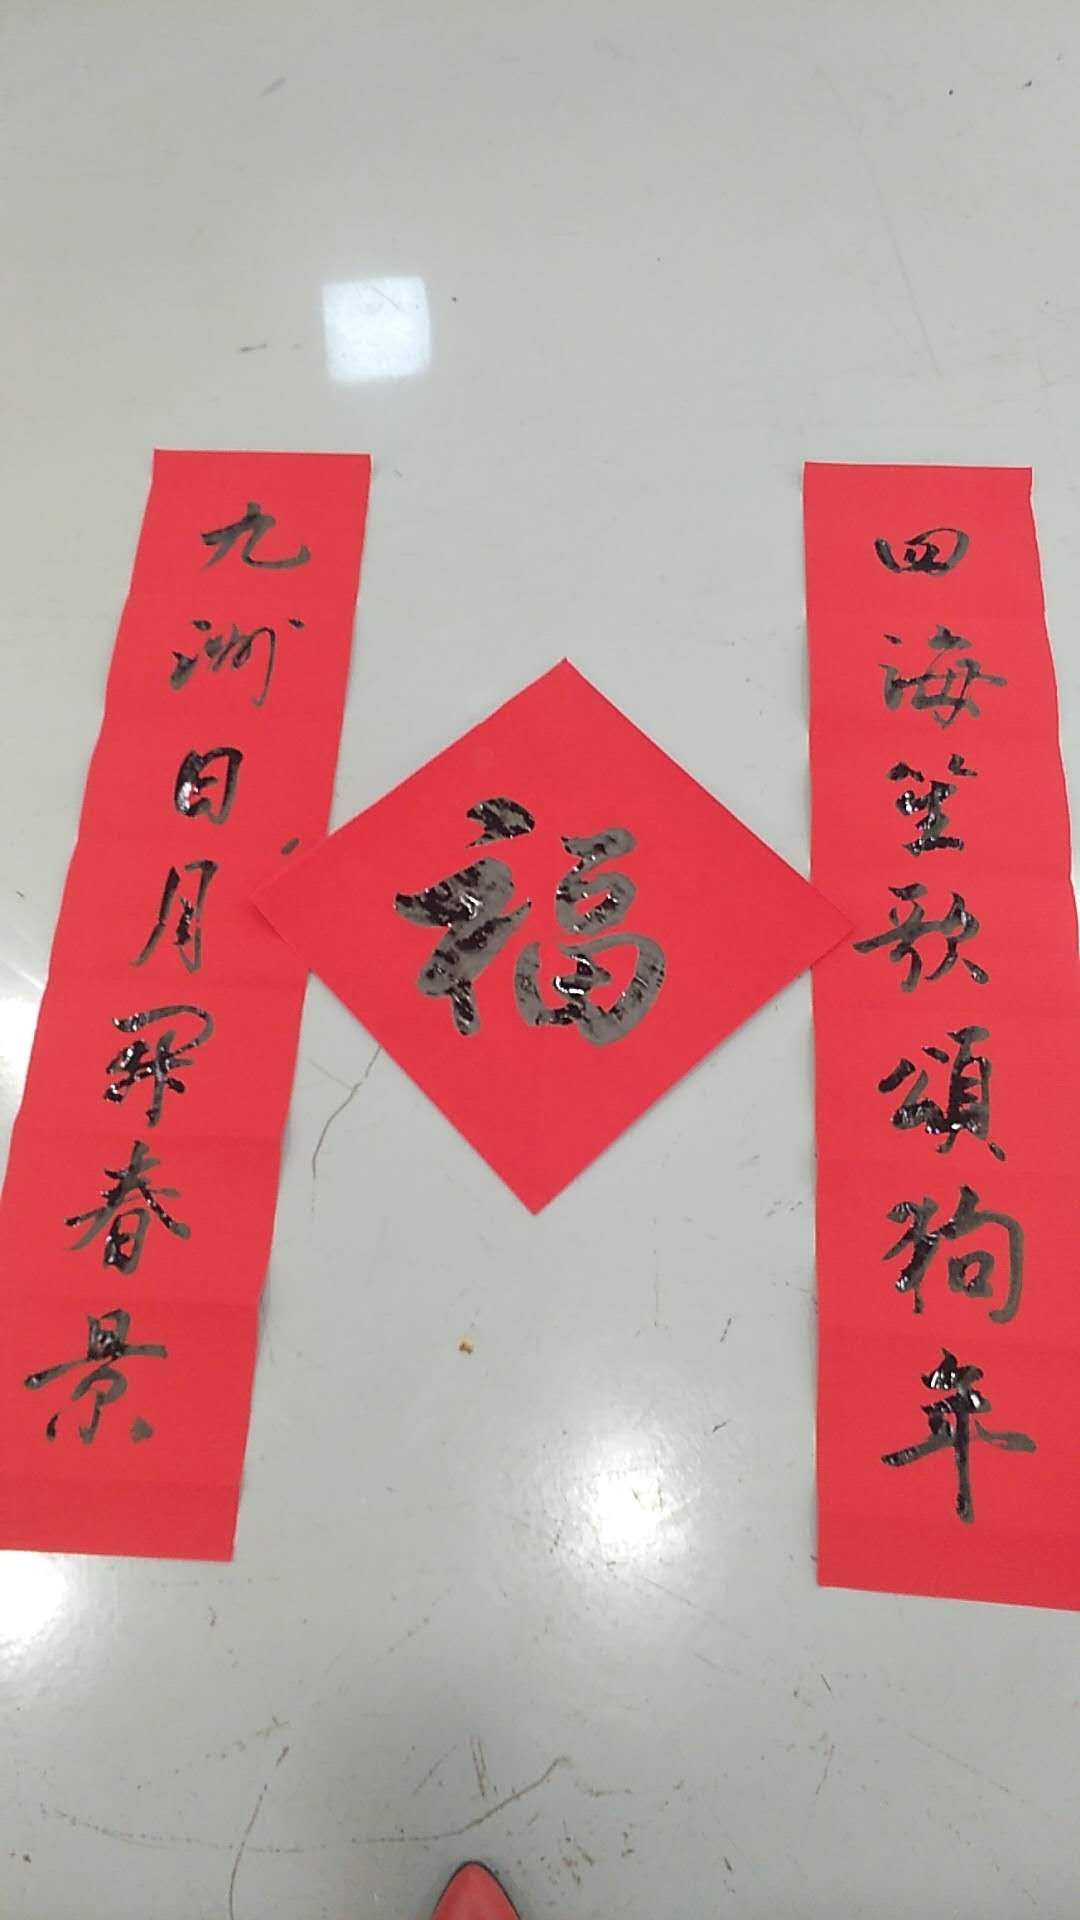 四海笙歌頌狗年
福
九洲日月開春景